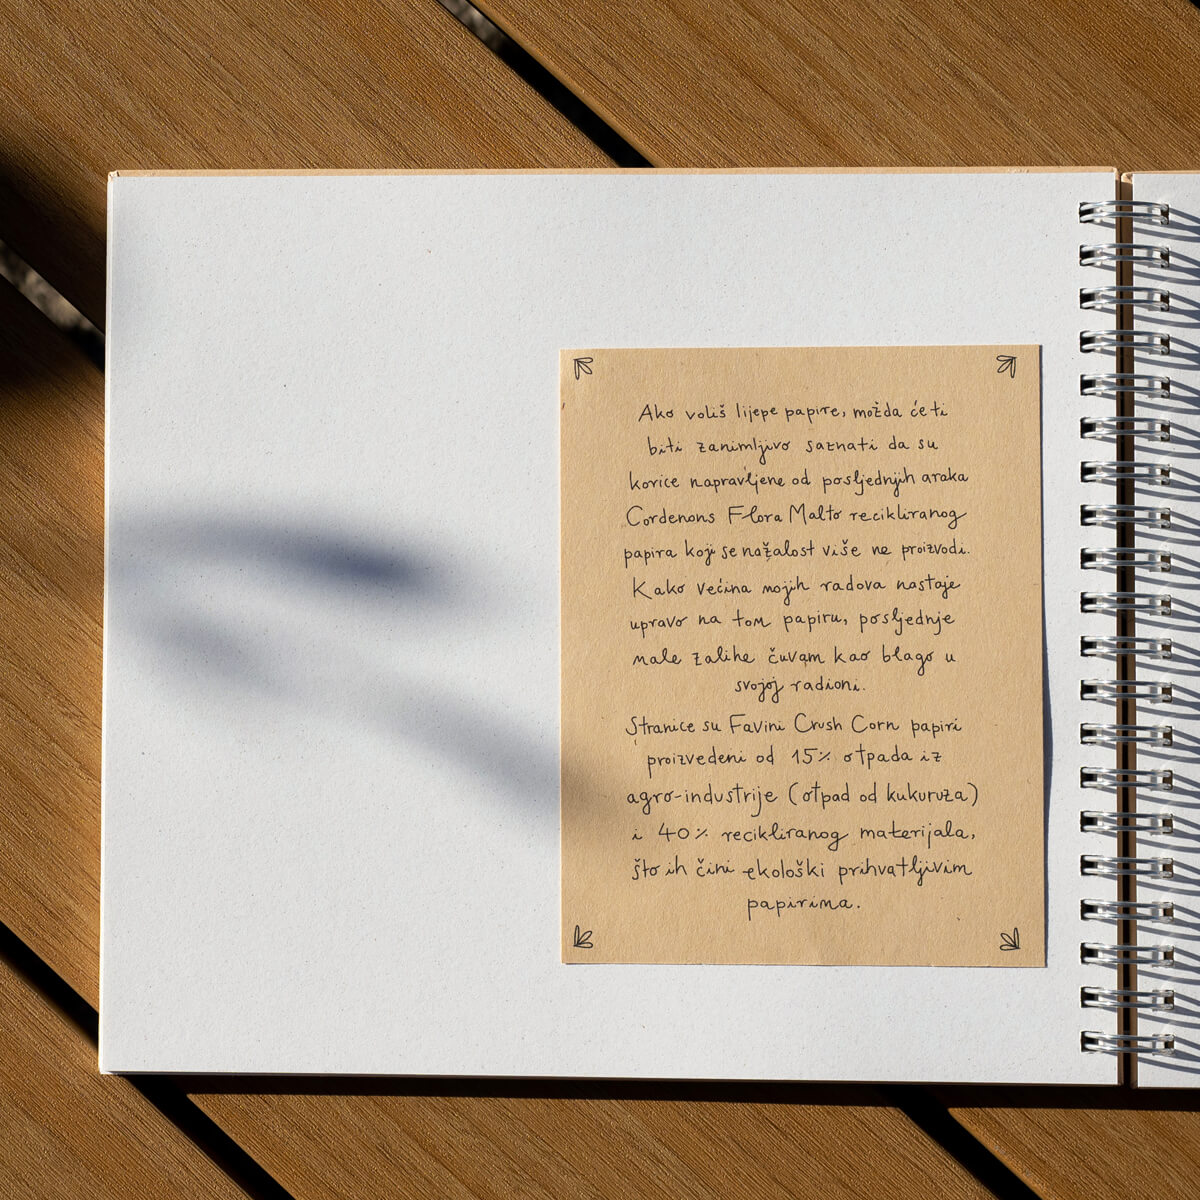 Ako voliš lijepe papire, možda će ti
biti zanimljivo saznati da su
korice napravljene od posljednjih araka
Cordenons Flora Malto recikliranog
papira koji se nažalost više ne proizvodi.
Kako većina mojih radova nastaje
upravo na tom papiru, posljednje
male zalihe čuvam kao blago u
svojoj radioni.
Stranice su Favini Crush Corn papiri
proizvedeni od 15% otpada iz
agro-industrije (otpad od kukuruza)
i 40% recikliranog materijala,
što ih čini ekološki prihvatljivim
papirima.